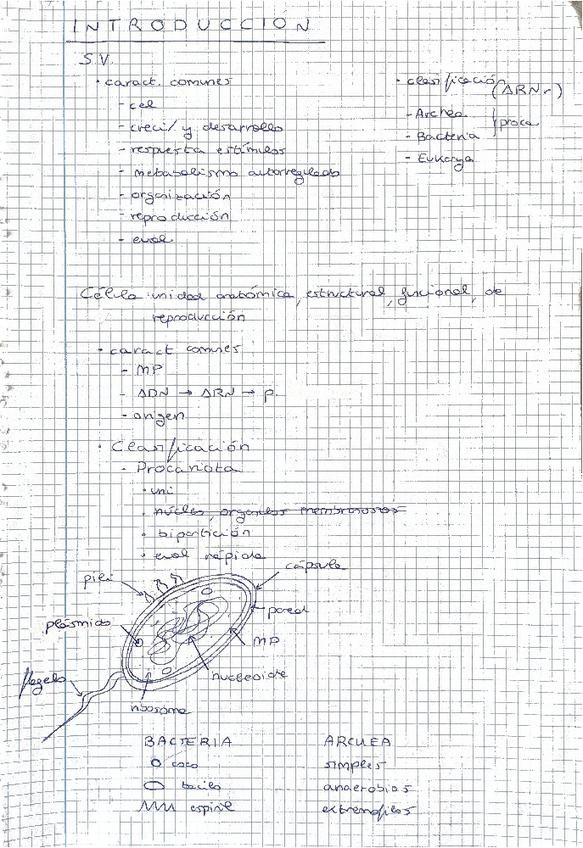 INTRODUCCION
S.V.
· caract. comunes
- cel
- creci/ y desarrollo
- respuesta estímulos
- metabolismo autorregulado
- organización
- reproducción
- evol
· clasificación (ARNr)
- Archea
- Bacteria
proca
- Eukarya
Célula unidad anatómica, estructural, funcional, de
reproducción
· caract comunes
- MP
- ADN → ARN → p.
- origen
· Clasificación
- Procariota
· uni
· núcleo, orgánulos membranosos
· bipartición
· evol rápida
pili
cápsula
pared
plásmido
MP
nucleoide
flagelo
ribosoma
BACTERIA
coco
bacilo
espiril
ARCHEA
simples
anaerobios
extremofilos